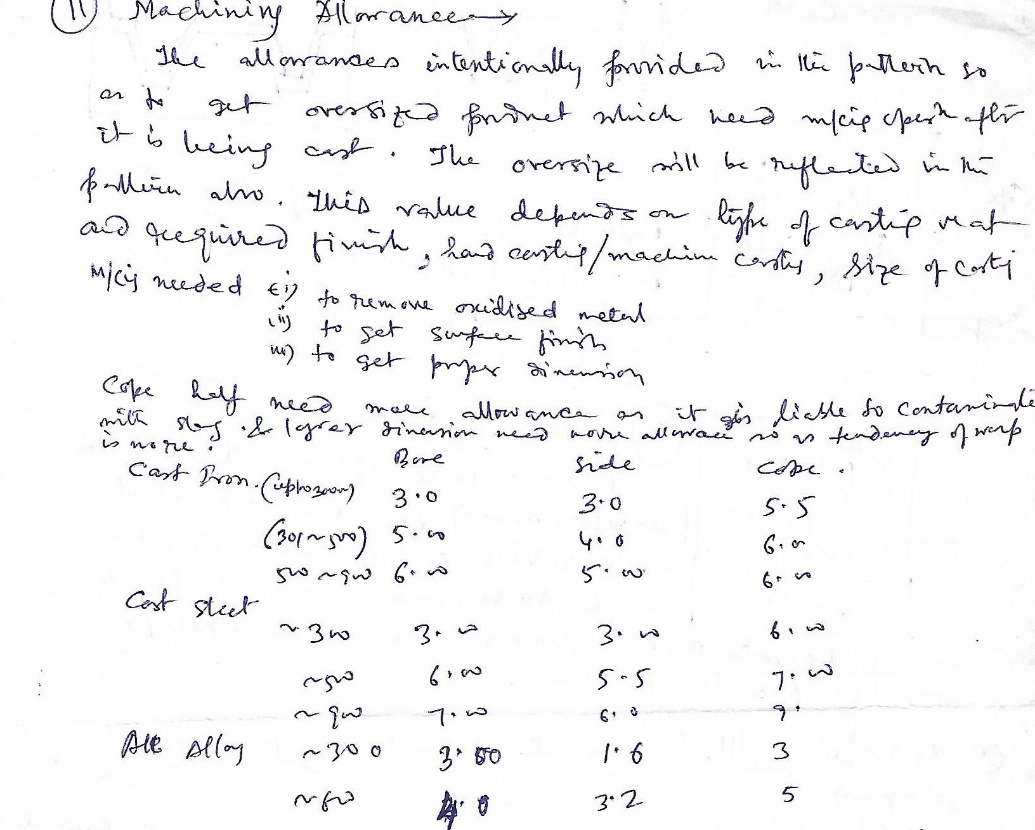 (11) Machining Allowance →
The allowances intentionally provided in the pattern so
as to get oversized product which need m/cig opern after
it is being cast. The oversize will be reflected in the
pattern also. This value depends on type of casting mat
and required finish, hand casting/machine casting, size of casting
M/cig needed (i) to remove oxidised metal
(ii) to get surface finish
(iii) to get proper dimension
Cope half need more allowance as it is liable to contaminate
with slag. & larger dimension need more allowance so as tendency of warp
is more.
Bore Side Cope.
Cast Iron. (upto 300) 3.0 3.0 5.5
(301~500) 5.00 4.0 6.0
500~900 6.00 5.00 6.00
Cast steel
~300 3.00 3.00 6.00
~500 6.00 5.5 7.00
~900 7.00 6.0 9.
Alloy ~300 3.00 1.6 3
4.0 3.2 5